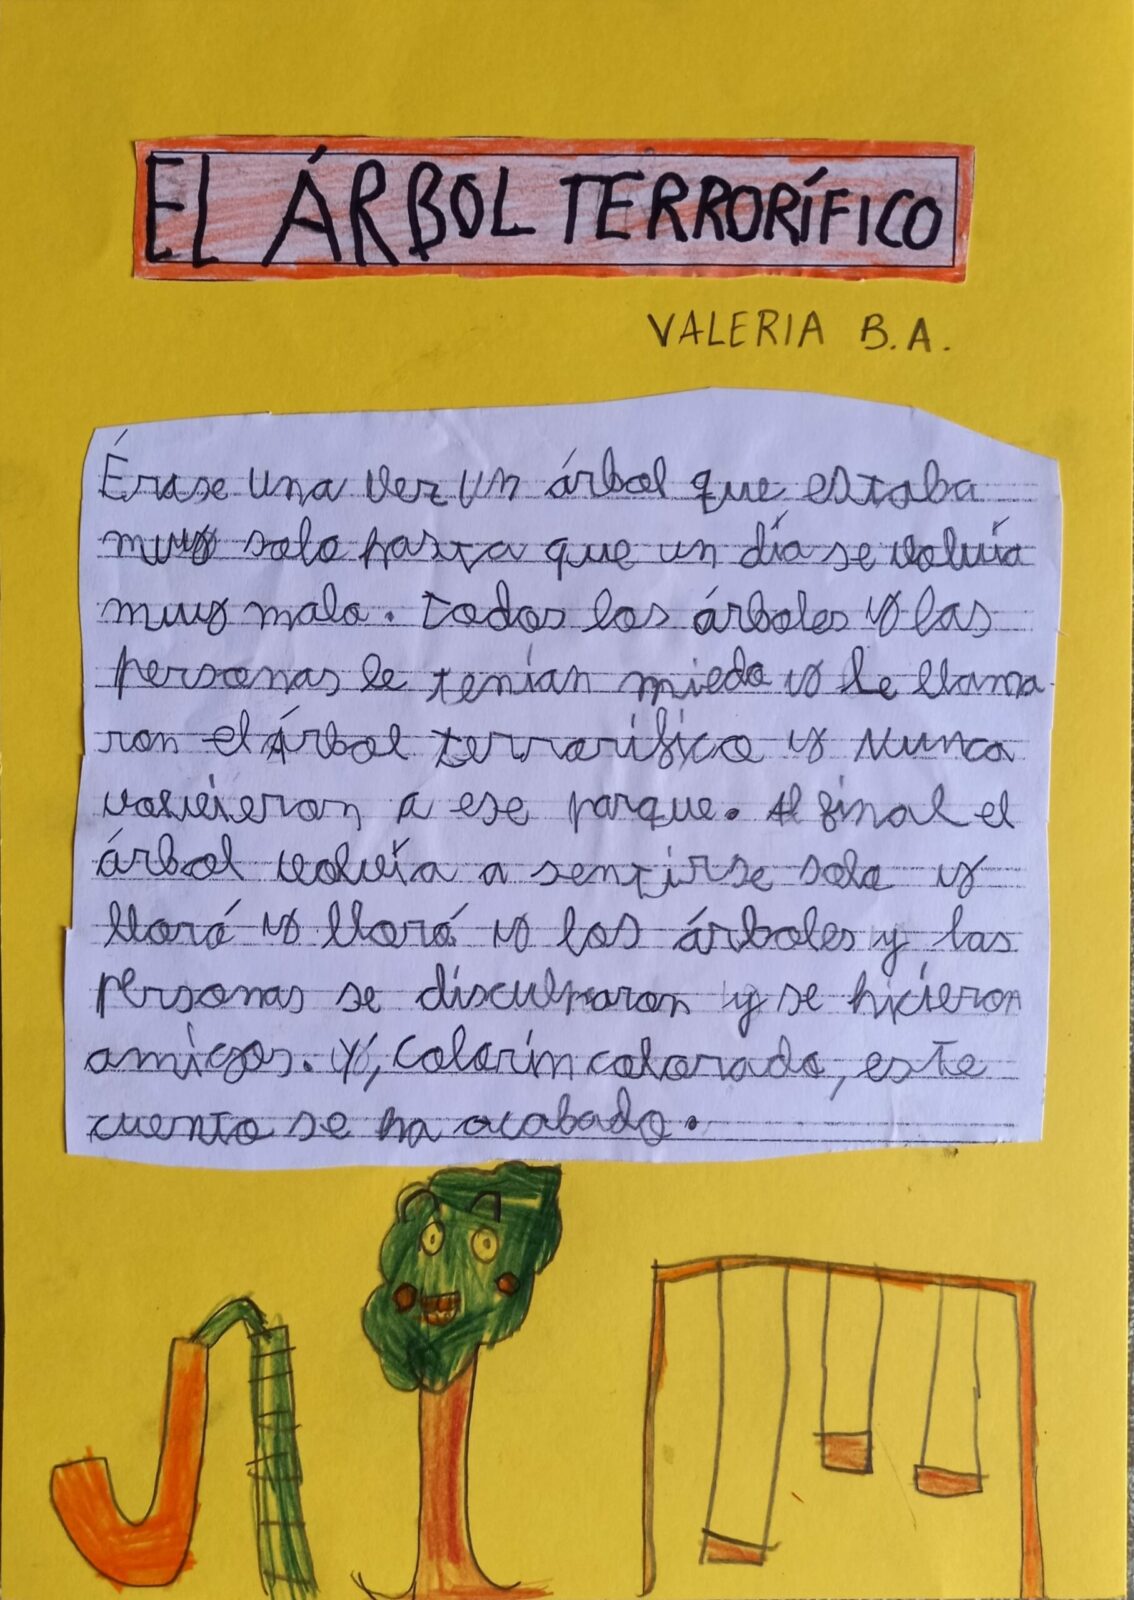 EL ÁRBOL TERRORÍFICO
VALERIA B.A.
Érase una vez un árbol que estaba
muy solo hasta que un día se volvía
muy malo. Todos los árboles y las
personas le tenían miedo y le llama
ron el Árbol terrorífico y Nunca
volvieron a ese parque. Al final el
árbol volvía a sentirse solo y
lloró y lloró y los árboles y las
personas se disculparon y se hicieron
amigos. Y, colorín colorado, este
cuento se ha acabado.